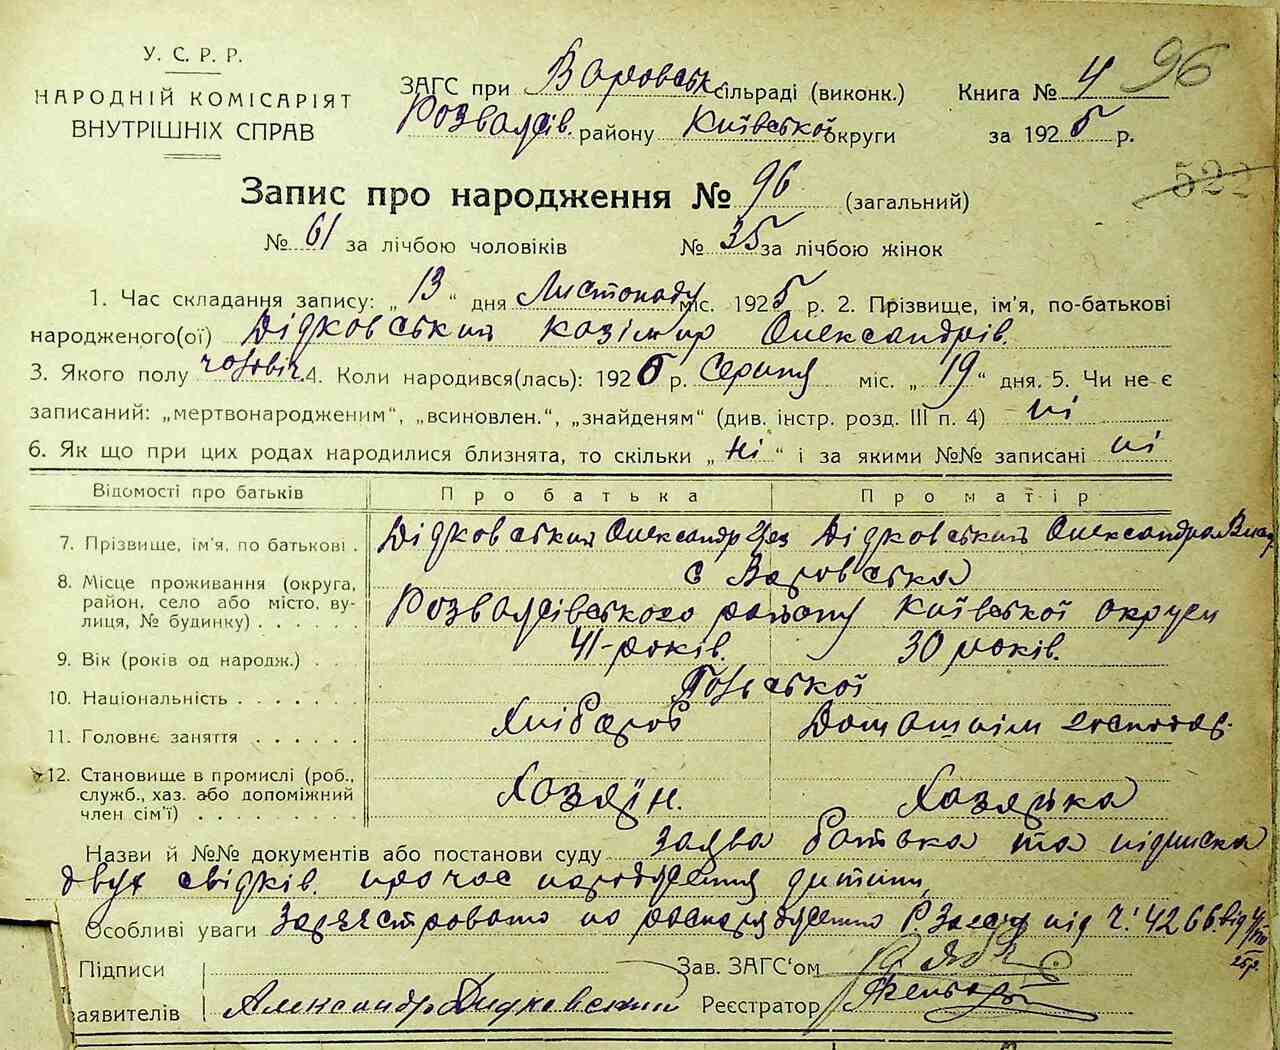 У. С. Р. Р.
НАРОДНІЙ КОМІСАРІЯТ
ВНУТРІШНІХ СПРАВ
ЗАГС при Варовськ. сільраді (виконк.) Книга № 4 96
Розважів. району Київської округи за 1925 р.
522
Запис про народження № 96 (загальний)
№ 61 за лічбою чоловіків № 35 за лічбою жінок
1. Час складання запису: „ 13 “ дня Листопаду міс. 1925 р. 2. Прізвище, ім'я, по-батькові
народженого(ої) Дідковський Козімір Олександрів.
3. Якого полу чоловіч. 4. Коли народився(лась): 192 р. Серпня міс. „ 19 “ дня. 5. Чи не є
записаний: „мертвонародженим“, „всиновлен.“, „знайденям“ (див. інстр. розд. III п. 4) ні
6. Як що при цих родах народилися близнята, то скільки „ ні “ і за якими №№ записані ні
Відомості про батьків Про батька Про матір
7. Прізвище, ім'я, по батькові . Дідковський Олександр Дідковський Олександра
8. Місце проживання (округа, район, село або місто, вулиця, № будинку) . . . . . . с Варовська
Розважівського району Київської округи
9. Вік (років од народж.) . . 41-років. 30 років.
10. Національність . . . . . . . Польської
11. Головне заняття . . . . . . Хлібороб Домашнім господар.
12. Становище в промислі (роб., служб., хаз. або допоміжний член сім'ї) . . . . . . . . . Хазяїн. Хазяйка
Назви й №№ документів або постанови суду заява батька та підписка
двух свідків. про час народження дитини
Особливі уваги Зареєстровано по распорядженню Р. Загсу під Ч: 4266 від
25р.
Підписи Зав. ЗАГС'ом
заявителів Александр Дидковский Реєстратор